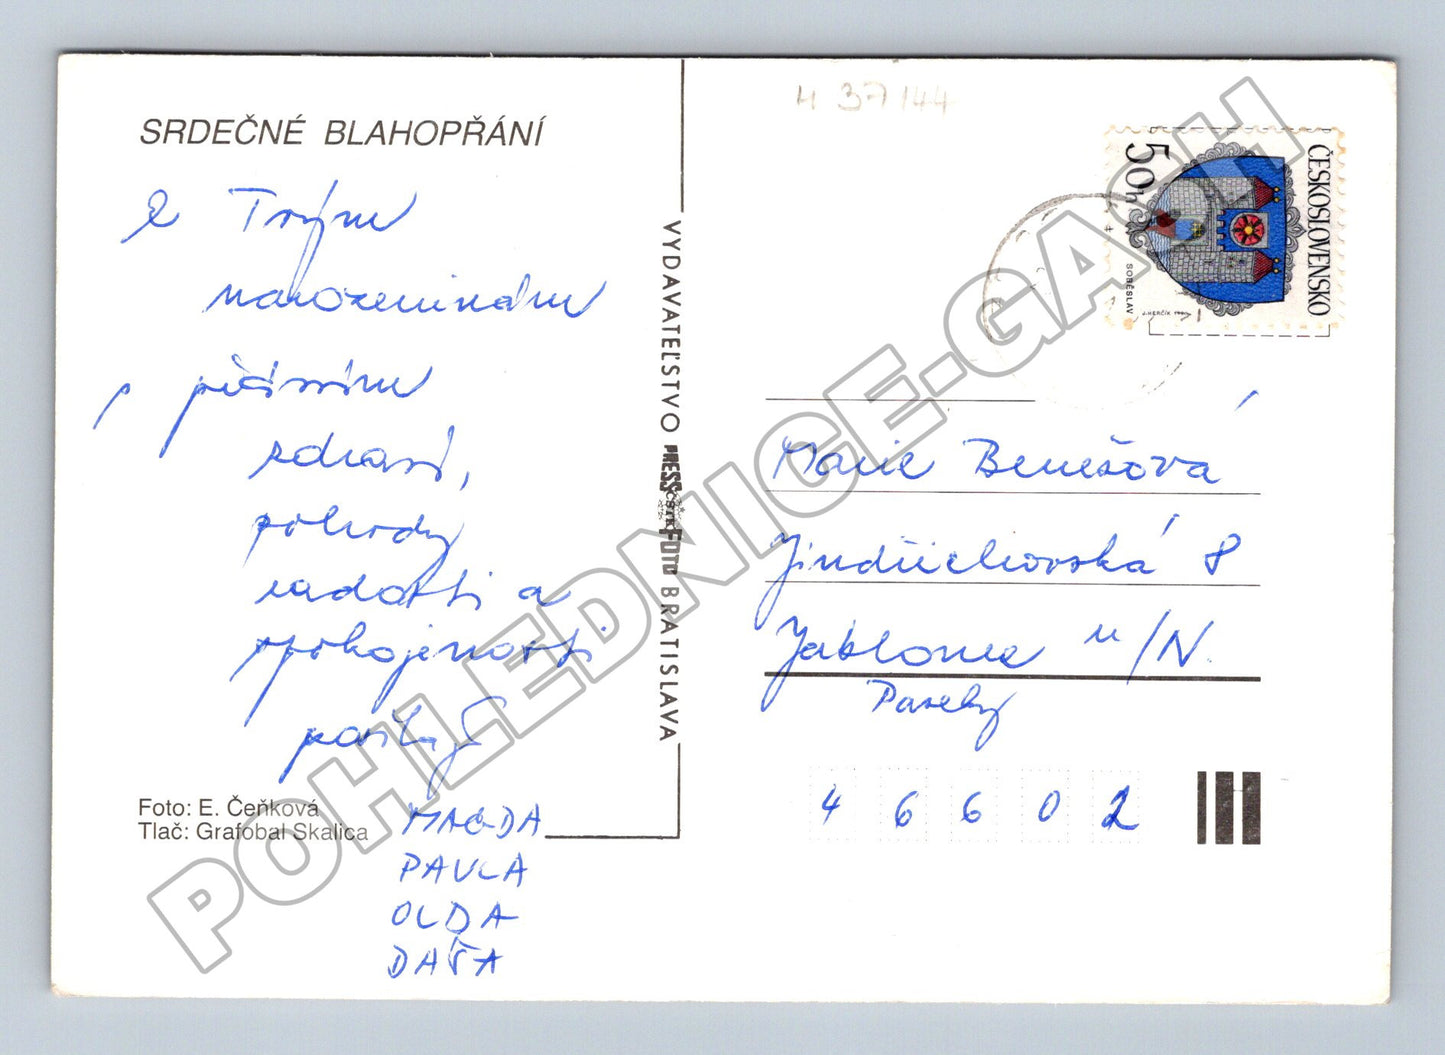 SRDEČNÉ BLAHOPŘÁNÍ
k Tvým
narozeninám
, přejeme
zdraví,
pohody
radosti a
spokojenosti
MAGDA
PAVLA
OLDA
DÁŠA
Foto: E. Čeňková
Tlač: Grafobal Skalica
VYDAVATEĽSTVO PRESSFOTO BRATISLAVA
ČSTK
H 37144
ČESKOSLOVENSKO
50h
SOBĚSLAV
J. HERČÍK
Marie Benešová
Jindřichovská 8
Jablonec n/N.
Paseky
46602
POHLEDNICE-GASH